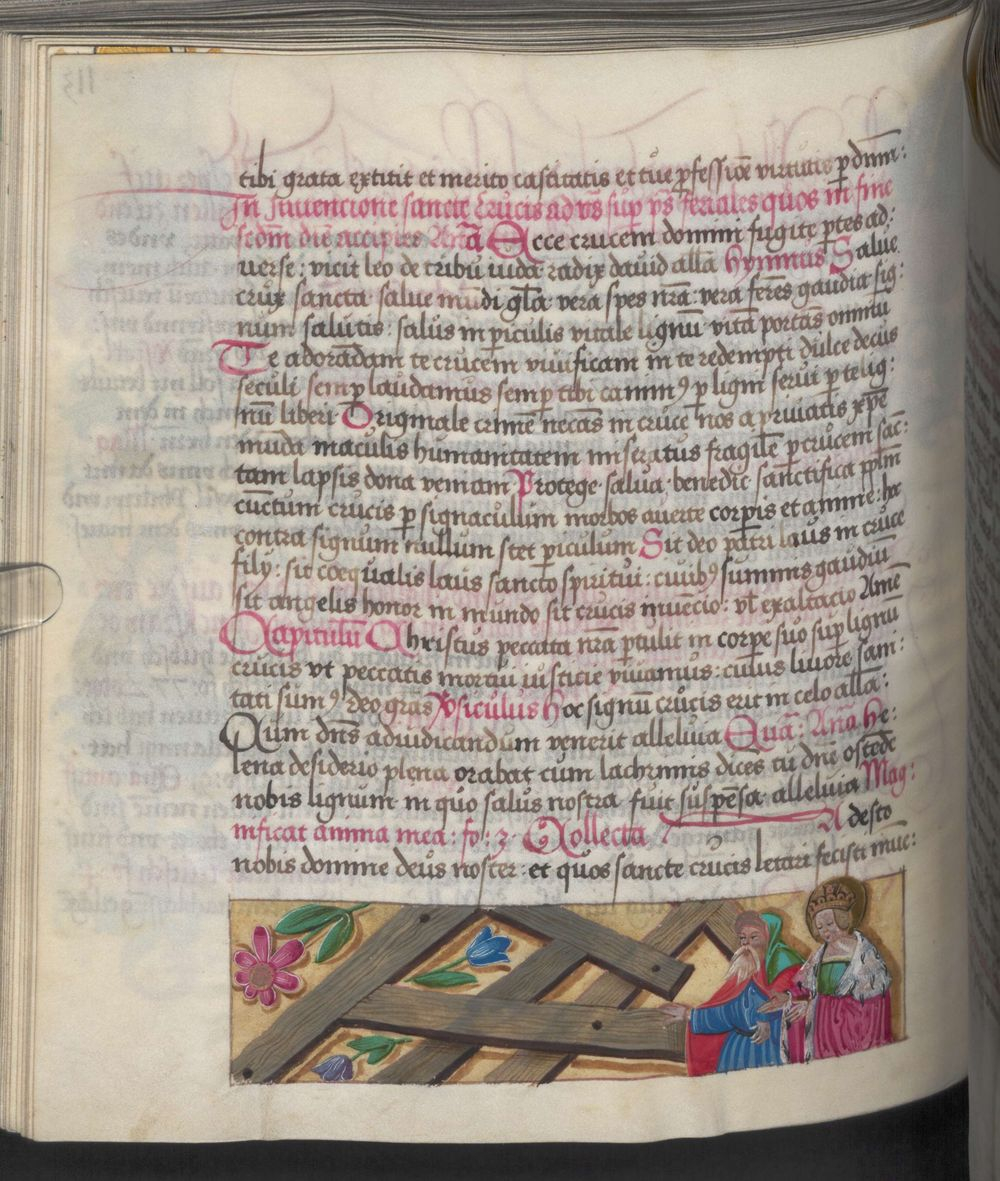 113
tibi grata extitit et merito castitatis et tue ꝓfessiõe virtutis p dñm:
In Jnuencione sancte Crucis ad vs̃ suꝑ ps̃ feriales quos in fine
scdm diu̅ accipies Añã Ecce crucem domini fugite ꝑtes ad:
uerse: vicit leo de tribu iuda radix dauid alla Hymnus Salue
crux sancta salue mu̅di gl̃a vera spes nr̃a: vera fere̅s gaudia sig:
num salutis: salus in ꝑiculis vitale lignu̅ vita̅ portãs omniu̅
Te adoranda̅m te crucem viuificam in te redempti dulce decus
seculi semꝑ laudamus semꝑ tibi canimꝰ ꝑ lignu̅ serui ꝑ te lig:
nu̅ liberi Originale crime̅ necãs in cruce nos a priuatis xp̃e
munda maculis humanitatem miseratus fragile̅ ꝑ crucem sac̃:
tam lapsis dona veniam Protege salua benedic sanctifica ppl̃m
cu̅ctum crucis ꝑ signaculum morbos auerte corꝑis et anime: hoc
contra signum nullum stet ꝑiculum Sit deo patri laus in cruce
filij: sit coequalis laus sancto spiritui: ciuibꝰ summis gaudiu̅
sit angelis honor in mundo sit crucis inue̅cio: vl̃ exaltacio Ame̅
Capitulu̅ Christus peccata nr̃a ꝑtulit in corꝑe suo suꝑ lignu̅
crucis vt peccatis mortui iusticie viuamus: cuius liuore san:
tati sumꝰ deo gras Vsiculus Hoc signu̅ crucis erit in celo alla̅:
Cum dn̅s ad iudicandum venerit alleluia Qua̅: Añã He:
lena desiderio plena orabat cum lachrimis dice̅s tu dn̅e oste̅de
nobis lignum in quo salus nostra fuit suspe̅sa alleluia Mag:
nificat anima mea: fo: 3 Collecta Adesto
nobis domine deus noster: et quos sancte crucis letari fecisti inue̅: